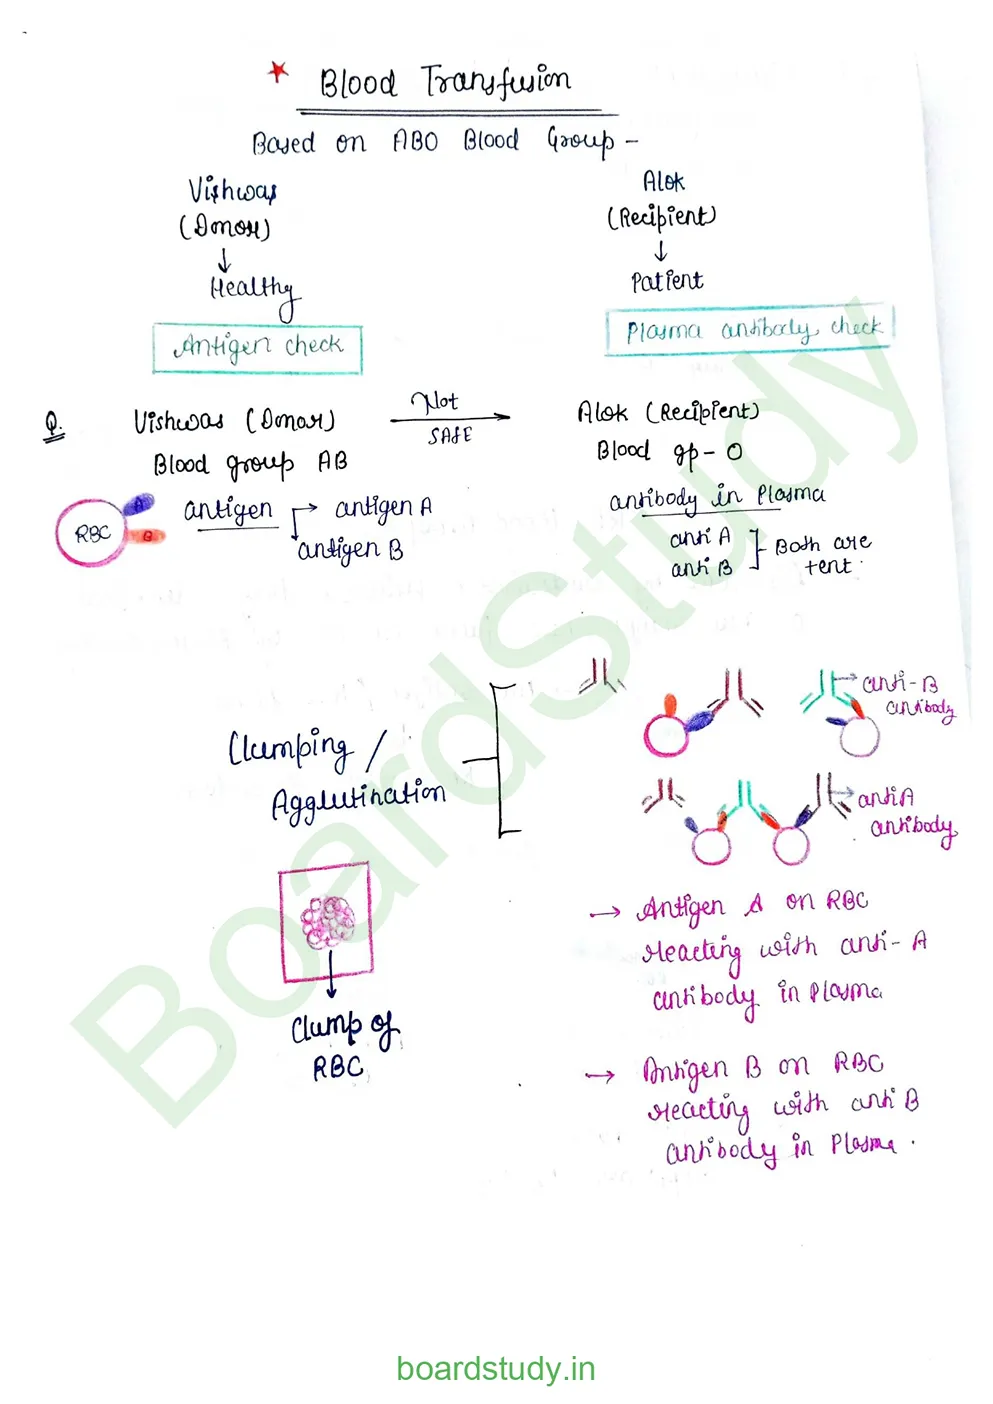 Blood Transfusion
Based on ABO Blood Group -
Vishwas
(Donor)
↓
Healthy
Antigen check
Alok
(Recipient)
↓
Patient
Plasma antibody check
Q. Vishwas (Donor) Not SAFE → Alok (Recipient)
Blood group AB
Blood gp - O
RBC
A
B
antigen → antigen A
antigen B
antibody in Plasma
anti A
anti B
Both are
tent.
Clumping /
Agglutination
anti-B
antibody
anti A
antibody
Clump of
RBC
→ Antigen A on RBC
reacting with anti-A
antibody in Plasma
→ Antigen B on RBC
reacting with anti B
antibody in Plasma.
BoardStudy
boardstudy.in